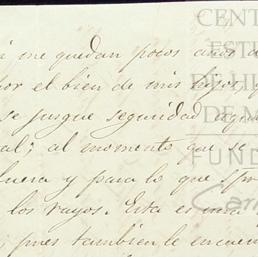 me quedan pocos años de
por el bien de mis hijos y
se juzgue seguridad
al; al momento que se
fuera y para lo que
los rayos. Esta es una
; pues tambien le
CENT
EST
DE HI
DE M
FUND